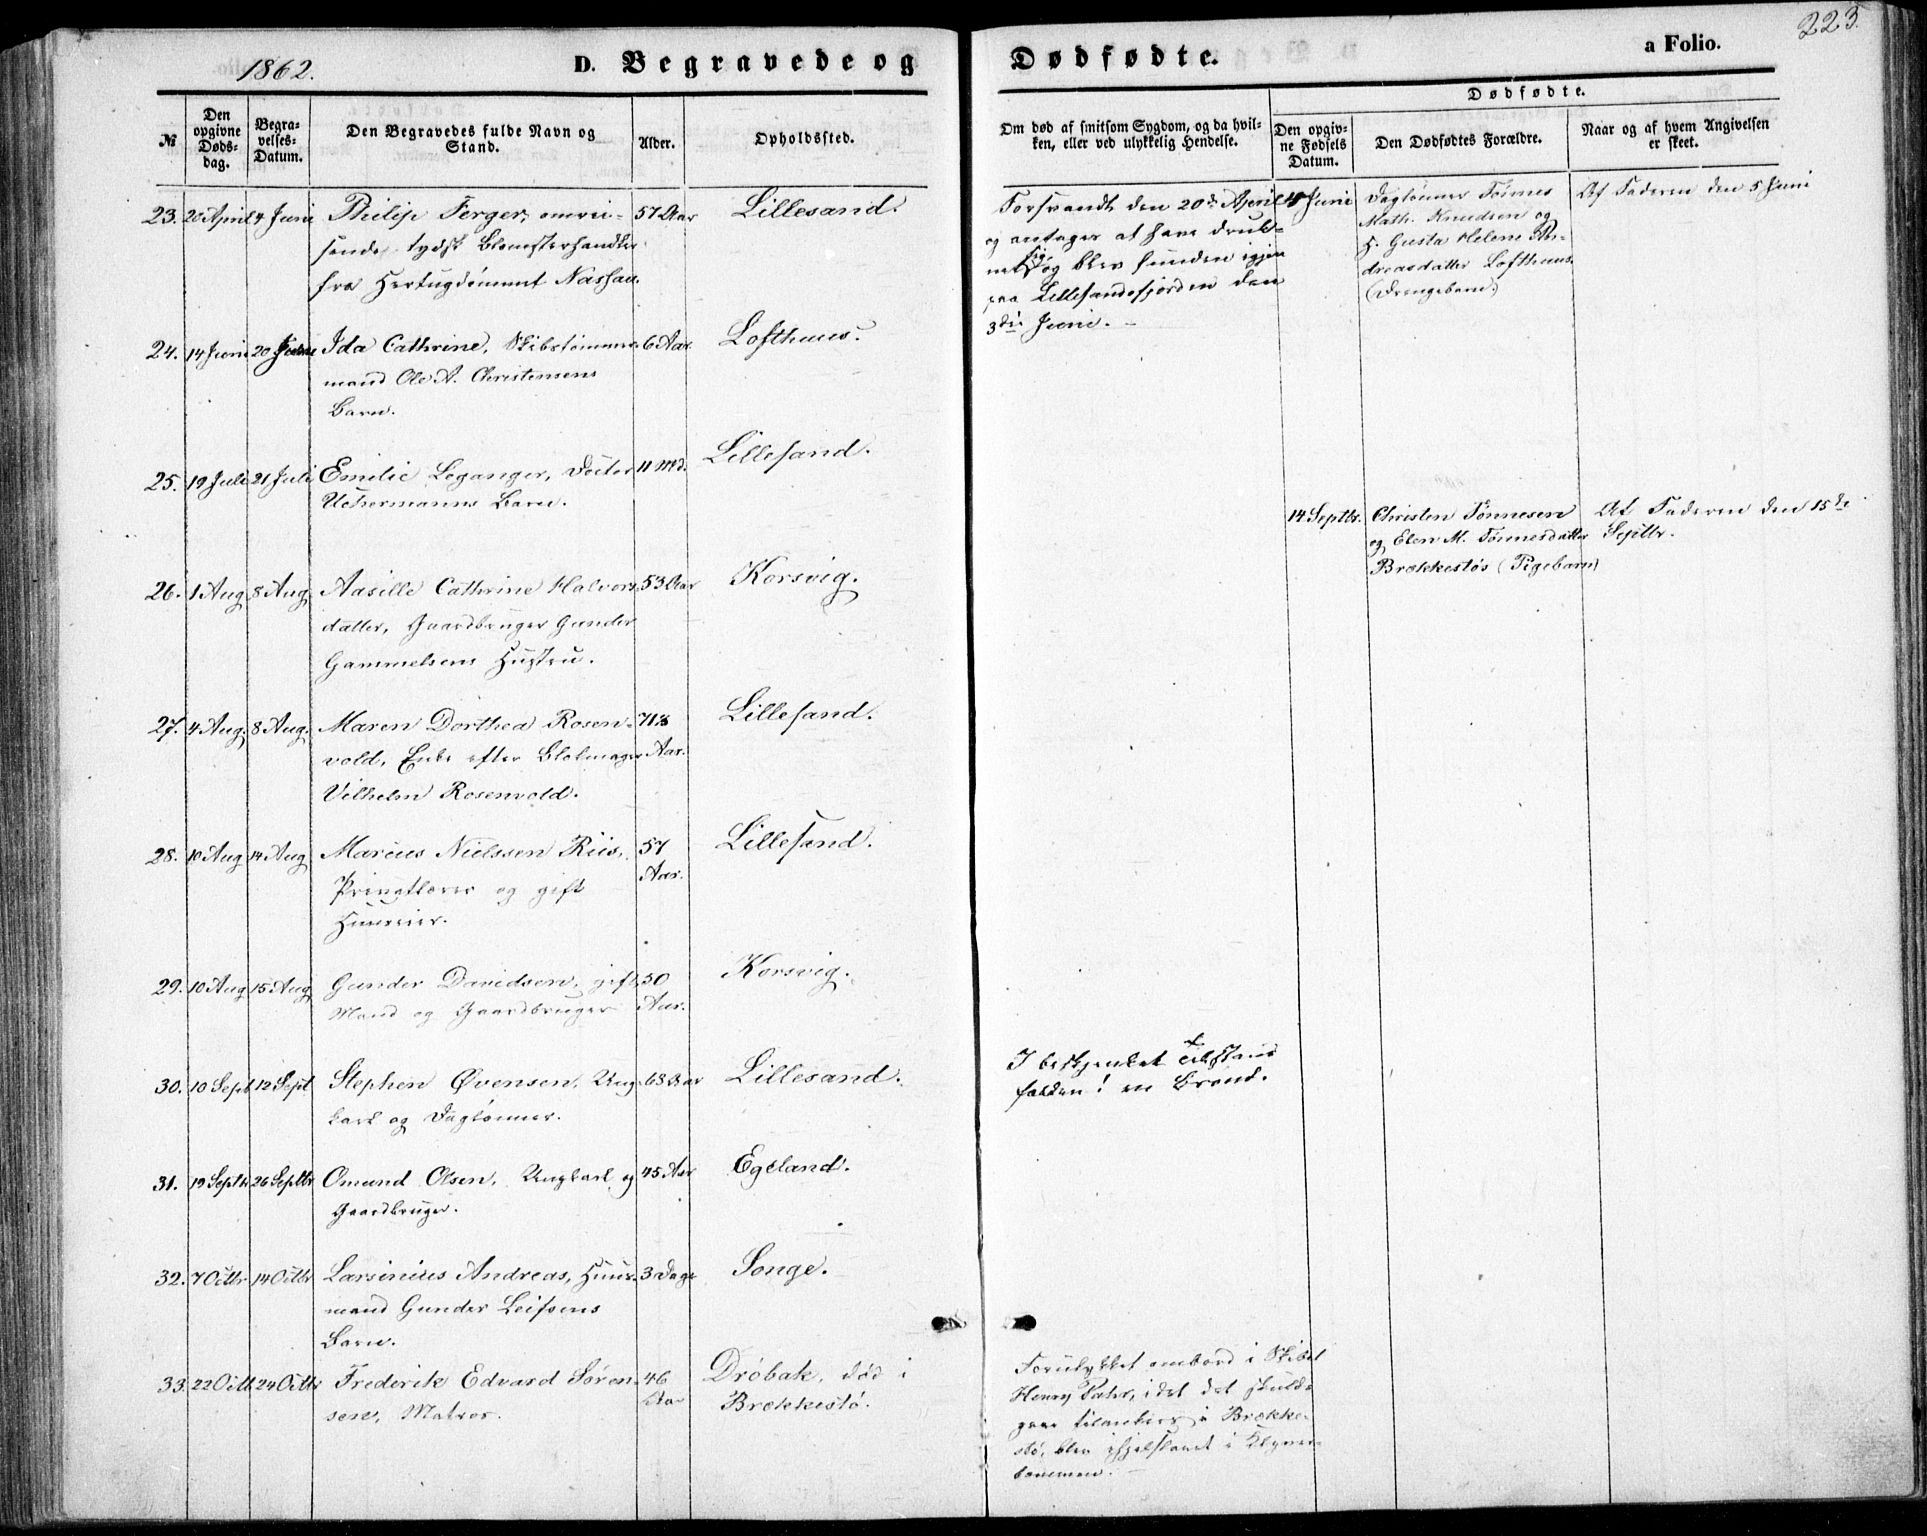 1862.
D. Begravede og
Dødfødte.
a Folio.
223.
№
Den opgivne Døds-dag.
Begra-velses-Datum.
Den Begravedes fulde Navn og Stand.
Alder.
Opholdssted.
Om død af smitsom Sygdom, og da hvil-ken, eller ved ulykkelig Hendelse.
Dødfødte.
Den opgiv-ne Fødsels Datum.
Den Dødfødtes Forældre.
Naar og af hvem Angivelsen er skeet.
23. 20 April 4 Juni Philip Ferger, omrei- 57 Aar Lillesand.
sende tydsk Blomsterhandler
fra Hertugdømmet Nassau.
Forsvandt den 20de April
og antages at have druk-
net sig og blev funden igjen
paa Lillesandsfjorden den
3die Juni. –
Juni Daglønner Tønnes
Math. Knudsen og
H. Gusta Helene An-
dreasdatter Lofthuus.
(Drengebarn.)
Af Faderen den 5 Juni
24. 14 Juni 20 Juni Ida Cathrine, Skibstømmer- 6 Aar Lofthuus.
mand Ole A. Christensens
Barn.
25. 19 Juli 21 Juli Emilie Leganger, Docter 11 Md. Lillesand.
Uchermanns Barn.
14 Septbr. Christen Tønnesen
og Elen M. Tønnesdatter
Brækkestøs (Pigebarn)
Af Faderen den 15de
Septbr.
26. 1 Aug. 8 Aug. Aasille Cathrine Halvors- 53 Aar Korsvig.
datter, Gaardbruger Gunder
Gammelsens Hustru.
27. 4 Aug. 8 Aug. Maren Dorthea Rosen- Lillesand.
vold, Enke efter Blokmager Aar.
Vilhelm Rosenvold.
28. 10 Aug 14 Aug Marcus Nielssen Riis, 57 Lillesand.
Privatlærer og gift Aar.
Huuseier.
29. 10 Aug 15 Aug Gunder Davidsen, gift 50 Korsvig.
Mand og Gaardbruger Aar.
30. 10 Sept 12 Sept Stephen Øvensen, Ung- 68 Aar Lillesand.
karl og Daglønner.
I beskjenket Tilstand
falden i en Brønd.
31. 19 Septbr 26 Septbr Omund Olsen, Ungkarl og 45 Aar Egeland.
Gaardbruger.
32. 7 Octbr 14 Octbr Larsinius Andreas, Huus- 3 Dage Songe.
mand Gunder Leifsens
Barn.
33. 22 Octb. 24 Octbr Frederik Edvard Søren- 46 Drøbak, død i
sen, Matros. Aar Brækkestø.
Forulykket ombord i Skibet
Henry Pahr, idet det skulde
gaae tilankers i Brække-
stø, blev ihjelslaaet i Klyver-
bommen. –